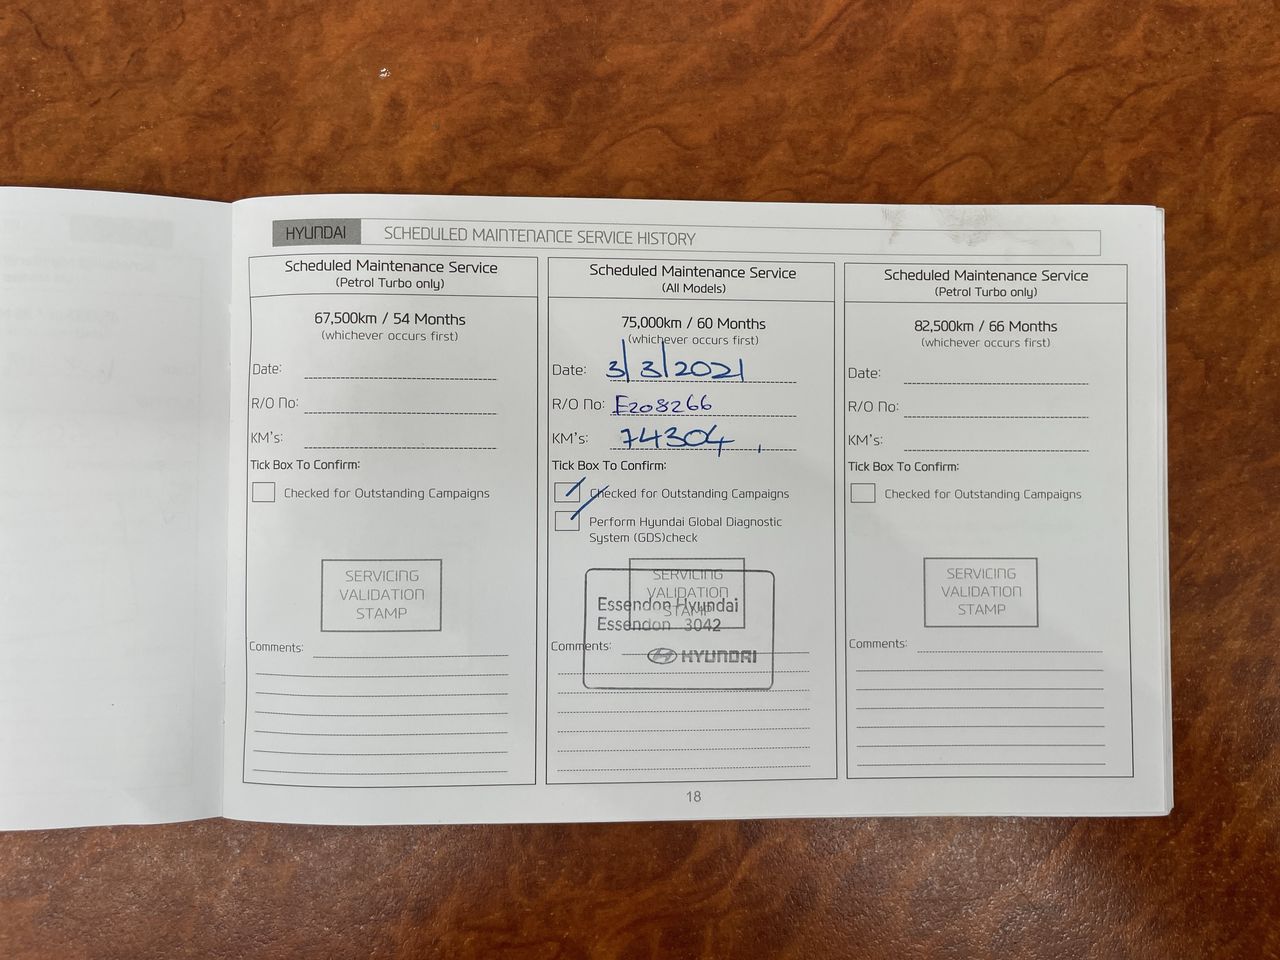 HYUNDAI SCHEDULED MAINTENANCE SERVICE HISTORY
Scheduled Maintenance Service
(Petrol Turbo only)
67,500km / 54 Months
(whichever occurs first)
Date:
R/O No:
KM's:
Tick Box To Confirm:
Checked for Outstanding Campaigns
SERVICING
VALIDATION
STAMP
Comments:
Scheduled Maintenance Service
(All Models)
75,000km / 60 Months
(whichever occurs first)
Date: 3/3/2021
R/O No: E208266
KM's: 74304
Tick Box To Confirm:
Checked for Outstanding Campaigns
Perform Hyundai Global Diagnostic
System (GDS)check
SERVICING
VALIDATION
STAMP
Essendon Hyundai
Essendon 3042
HYUNDAI
Comments:
Scheduled Maintenance Service
(Petrol Turbo only)
82,500km / 66 Months
(whichever occurs first)
Date:
R/O No:
KM's:
Tick Box To Confirm:
Checked for Outstanding Campaigns
SERVICING
VALIDATION
STAMP
Comments:
18